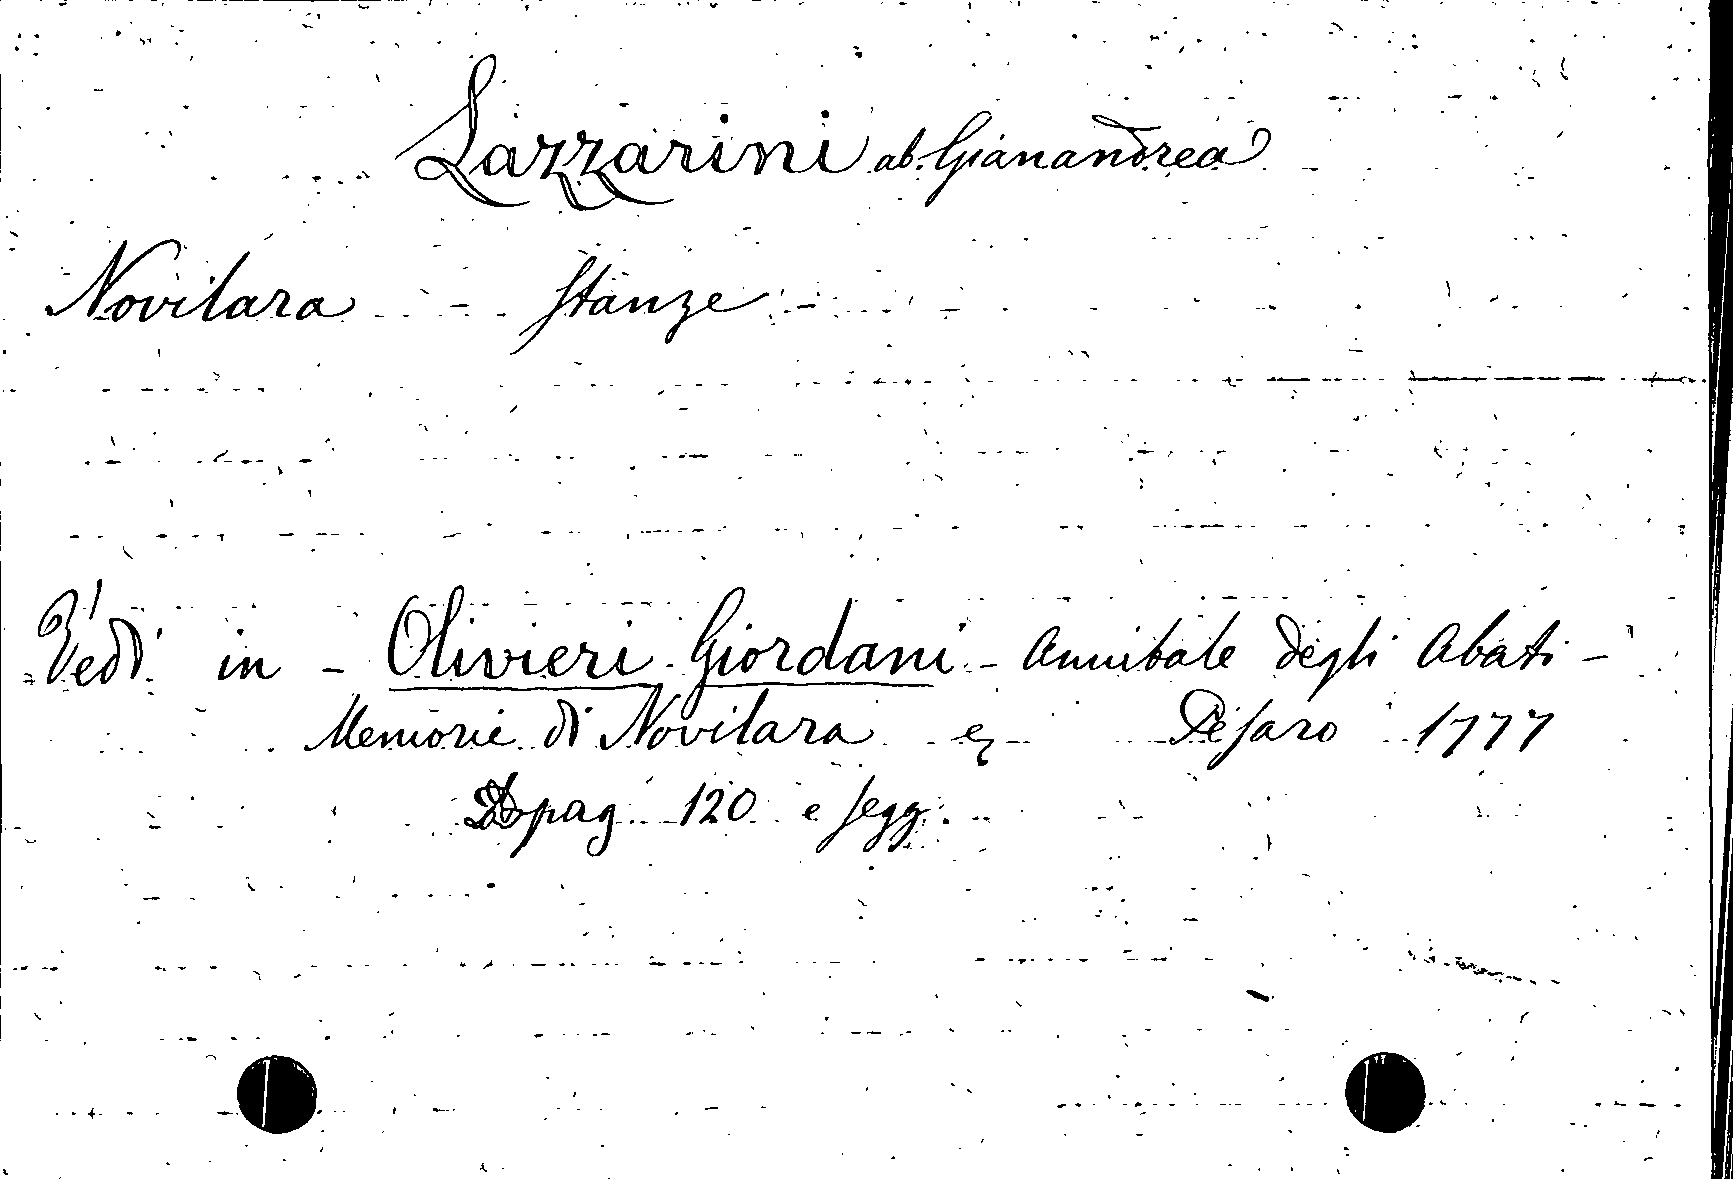 Lazzarini ab. Gianandrea
Novilara - Stanze -
Vedi in - Olivieri Giordani - Annibale degli Abati -
Memorie di Novilara Pesaro 1777
pag. 120 e segg.